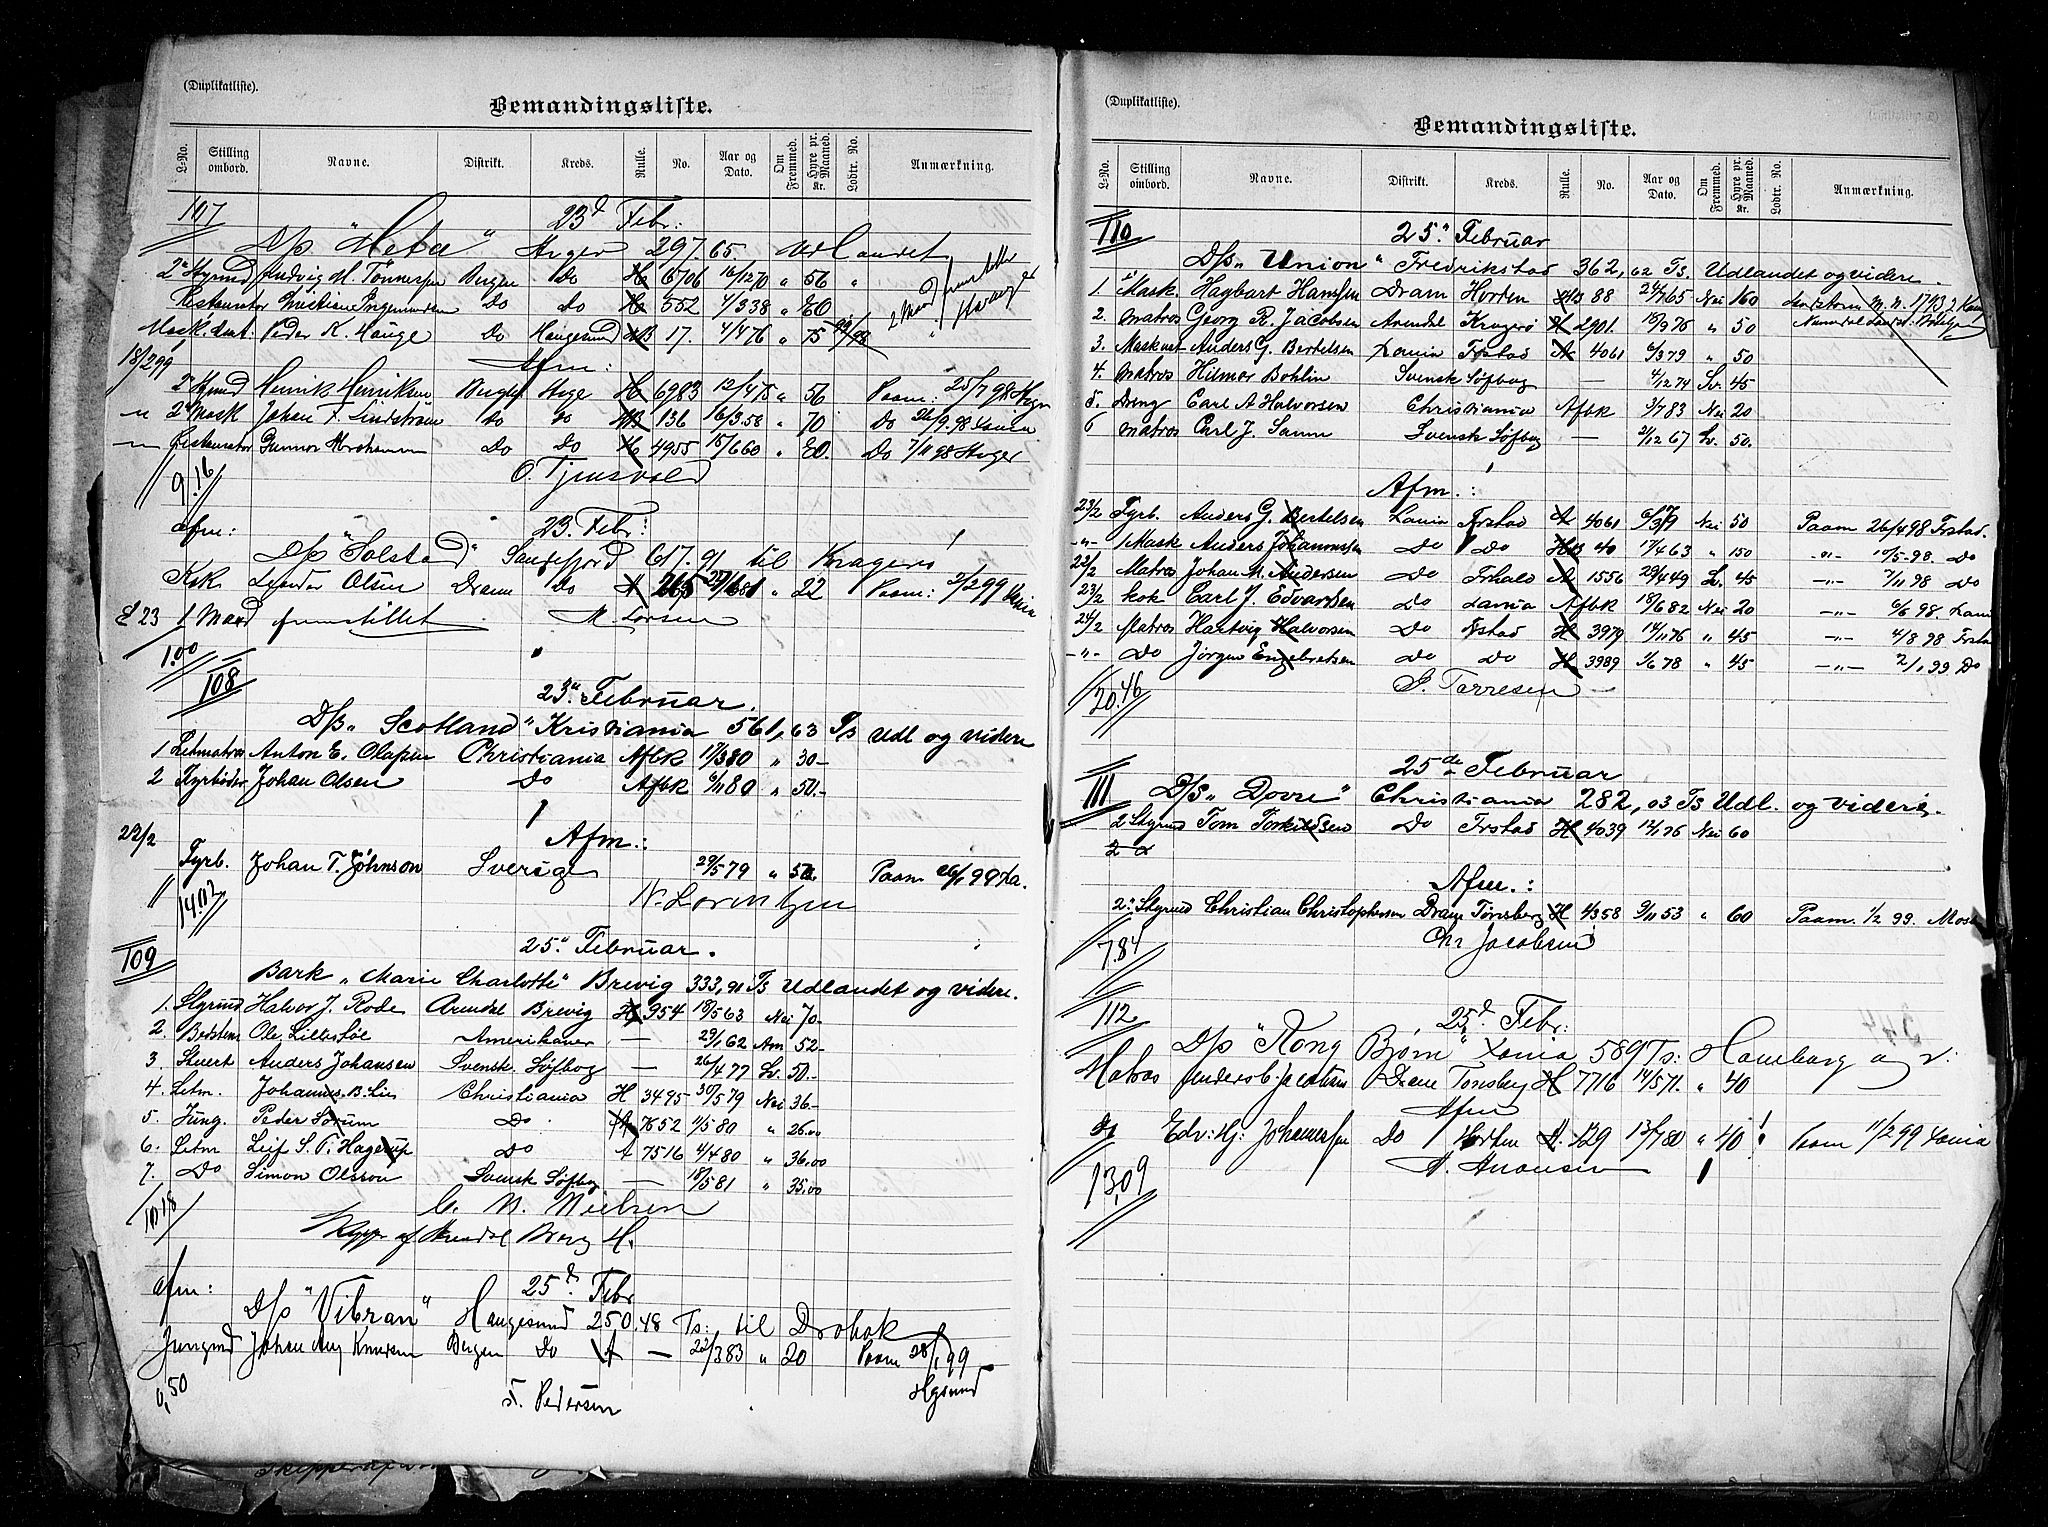 (Duplikatliste).
Bemandingsliste.
L-No. Stilling ombord. Navne. Distrikt. Kreds. Rulle. No. Aar og Dato. Om Fremmed. Hyre pr. Maaned. kr. Lodtr. No. Anmærkning.
107 23d Febr:
D/s "Heba" 297.65. Udlandet
2 Styrmd Ludvig M. Tønnesen Bergen Do H 6706 16/12 70 " 56 "
Restauratør Kristian Do Do H 552 4/3 38 " 80
Mask. Peder K. Hauge Do Haugesund MB 17. 4/4 76 " 75
18/2 99 Afm:
2 Styrmd Henrik Henriksen H 6983 12/4 75 " 56 Paam: 25/7 98
" 2 Mask Johan F. Lindstrøm Do Do MB 136 16/3.58 " 70 Do 26/9.98
" Restauratør Gunnar Do Do H 4955 15/6 60 " 80. Do 7/11 98
9.16 O. Tjusvold
afm: 23. Febr:
D/s "Solstad" Sandefjord 617.91 til Kragerø
Kok Olsen Dram Do A 265 27/6 81 " 22 Paam: 2/2 99
1 Mand M. Larsen
1.00
108
23de Februar.
D/s "Scotland" Kristiania 561,63 Ts Udl og videre
1 Letmatros Anton E. Olafsen Christiania Afbk 17/3 80 " 30-
2 Fyrbøder Johan Olsen Do Afbk 6/11 80 " 50.-
22/2 Afm.:
Fyrb. Johan T. Johnson Sverige 29/5 79 " 50. Paam 26/1 99 Xa.
14.03 N. Lorentzen
109 25de Februar.
Bark "Marie Charlotte" Brevig 333,91 Ts Udlandet og videre.
1. Styrmd Halvor J. Rode Arendal Brevig H 954 18/5 63 Nei 70-
2. Bedstem Ole Lillesøe Amerikaner — 29/1 62 Am 52-
3. Stuert Anders Johansen Svensk Søfbog — 26/4 77 Sv. 50.-
4. Letm. Johannes B. Lie Christiania H 3495 30/5 79 Nei 36-
5. Jung. Peder Sørum Do. A 7652 11/5 80 " 26.00
6. Letm Leif S. T. Hagerup Do A 7516 4/4 80 " 36,00
7. Do Simon Olsson Svensk Søfbg — 18/5 81 " 35.00
10.18 C. N. Nielsen
Skippr af Arendal Brevg H.
afm: 25de Febr
D/s "Vibran" Haugesund 250.48 Ts: til Drøbak
Jungmd Johan Aug Knudsen Bergen Do A — 22/3 83 " 20 Paam 28/1 99
Hgsund
0,50 T. Pedersen
(Duplikatliste).
Bemandingsliste.
L-No. Stilling ombord. Navne. Distrikt. Kreds. Rulle. No. Aar og Dato. Om Fremmed. Hyre pr. Maaned. kr. Lodtr. No. Anmærkning.
110 25de Februar
D/s "Union" Fredrikstad 362,62 Ts. Udlandet og videre.
1 Mask. Hagbart Hanssen Dram Horten MB 88 24/7 65 Nei 160
2. Matros Georg R. Jacobsen Arendal Kragerø H 2901. 18/9 76 " 50
3. Maskast Anders G. Bertelsen Xania Frstad A 4061 6/3 79 " 50
4. Matros Hilmar Bohlin Svensk Søfbog — 4/12 74 Sv. 45
5. Dreng Carl A Halvorsen Christiania Afbk 3/7 83 Nei 20
6 Matros Carl J. Samm Svensk Søfbog — 21/12 67 Sv. 50.
Afm.:
23/2 Fyrb. Anders G. Bertelsen Xania Frstad A 4061 6/3 79 Nei 50 Paam 26/4 98 Frstad.
-"- 1 Mask Anders Johannessen Do Do MB 40 17/4 63 " 150 -"- 10/5-98. Do
22/2 Matros Johan M. Andersen Do Frhald A 1556 29/4 49 Sv. 45 -"- 7/11 98 Do
23/2 kok Carl J. Edvardsen Do Xania Afbk 18/6 82 Nei 20 -"- 6/6 98. Xania
24/2 Matros Hartvig Halvorsen Do Frstad H 3979 14/11 76 " 45 -"- 4/8 98 Frstad
-"- Do Jørgen Engebretsen Do Do H 3989 1/6 78 " 45 -"- 2/1 99 Do
20.46 S. Torresen
111 25de Februar
D/s "Dovre" Christiania 282,03 Ts Udl. og videre.
2 Styrmd Tom Torkildsen Do Frstad H 4039 12/1 76 Nei 60
Afm.:
2. Styrmd Christian Christophersen Dram Tønsberg H 4358 9/11 53 " 60 Paam. 1/2 99. Moss
7.84 Chr Jacobsen
112 25d Febr:
D/s "Kong Bjørn" Xania 589 Ts: Hamburg o v:
Matros Anders C. Jacobsen Dram Tønsberg H 7716 14/5 71. " 40
Afm
Do Edv: Hj: Johannesen Do Horten A. 129 13/7 80 " 40 Paam 11/2 99 Xania
13,09